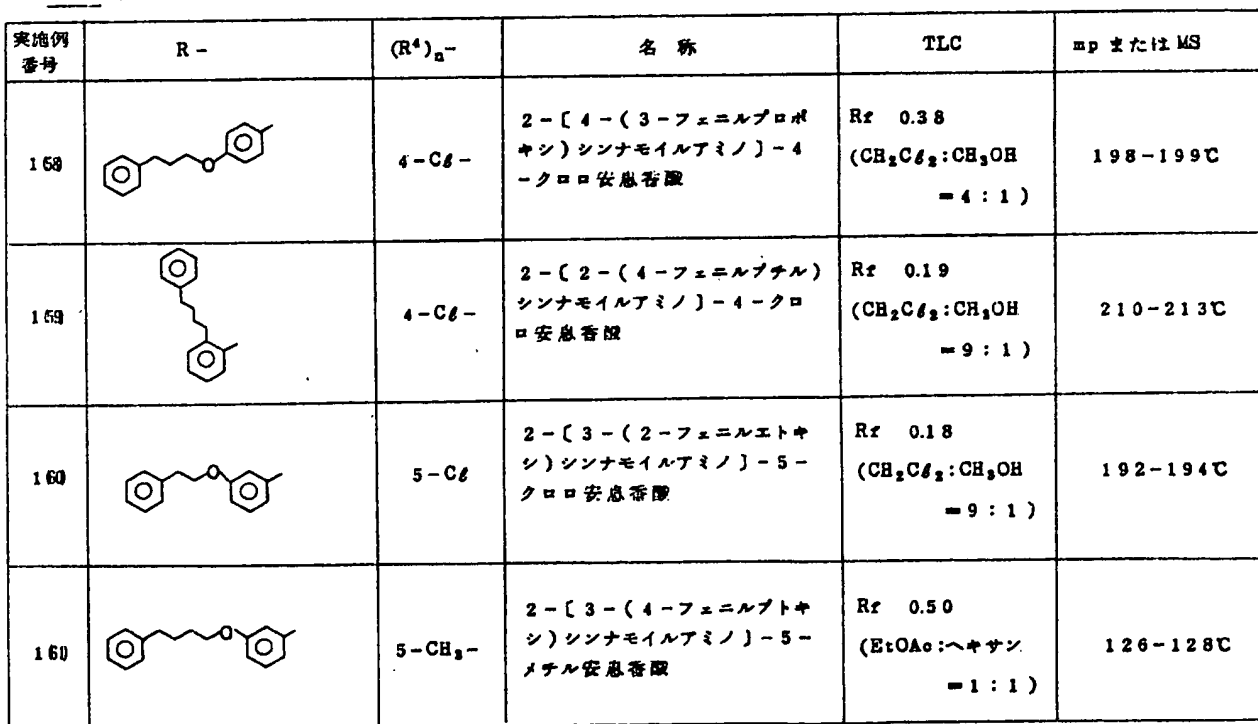 実施例番号
R-
(R⁴)ₙ-
名 称
TLC
mp または MS
158
4-Cl-
2-〔4-(3-フェニルプロポ
キシ)シンナモイルアミノ〕-4
-クロロ安息香酸
Rf 0.38
(CH₂Cl₂:CH₃OH
=4:1)
198-199℃
159
4-Cl-
2-〔2-(4-フェニルブチル)
シンナモイルアミノ〕-4-クロ
ロ安息香酸
Rf 0.19
(CH₂Cl₂:CH₃OH
=9:1)
210-213℃
160
O
5-Cl
2-〔3-(2-フェニルエトキ
シ)シンナモイルアミノ〕-5-
クロロ安息香酸
Rf 0.18
(CH₂Cl₂:CH₃OH
=9:1)
192-194℃
O
5-CH₃-
2-〔3-(4-フェニルブトキ
シ)シンナモイルアミノ〕-5-
メチル安息香酸
Rf 0.50
(EtOAc:ヘキサン
=1:1)
126-128℃